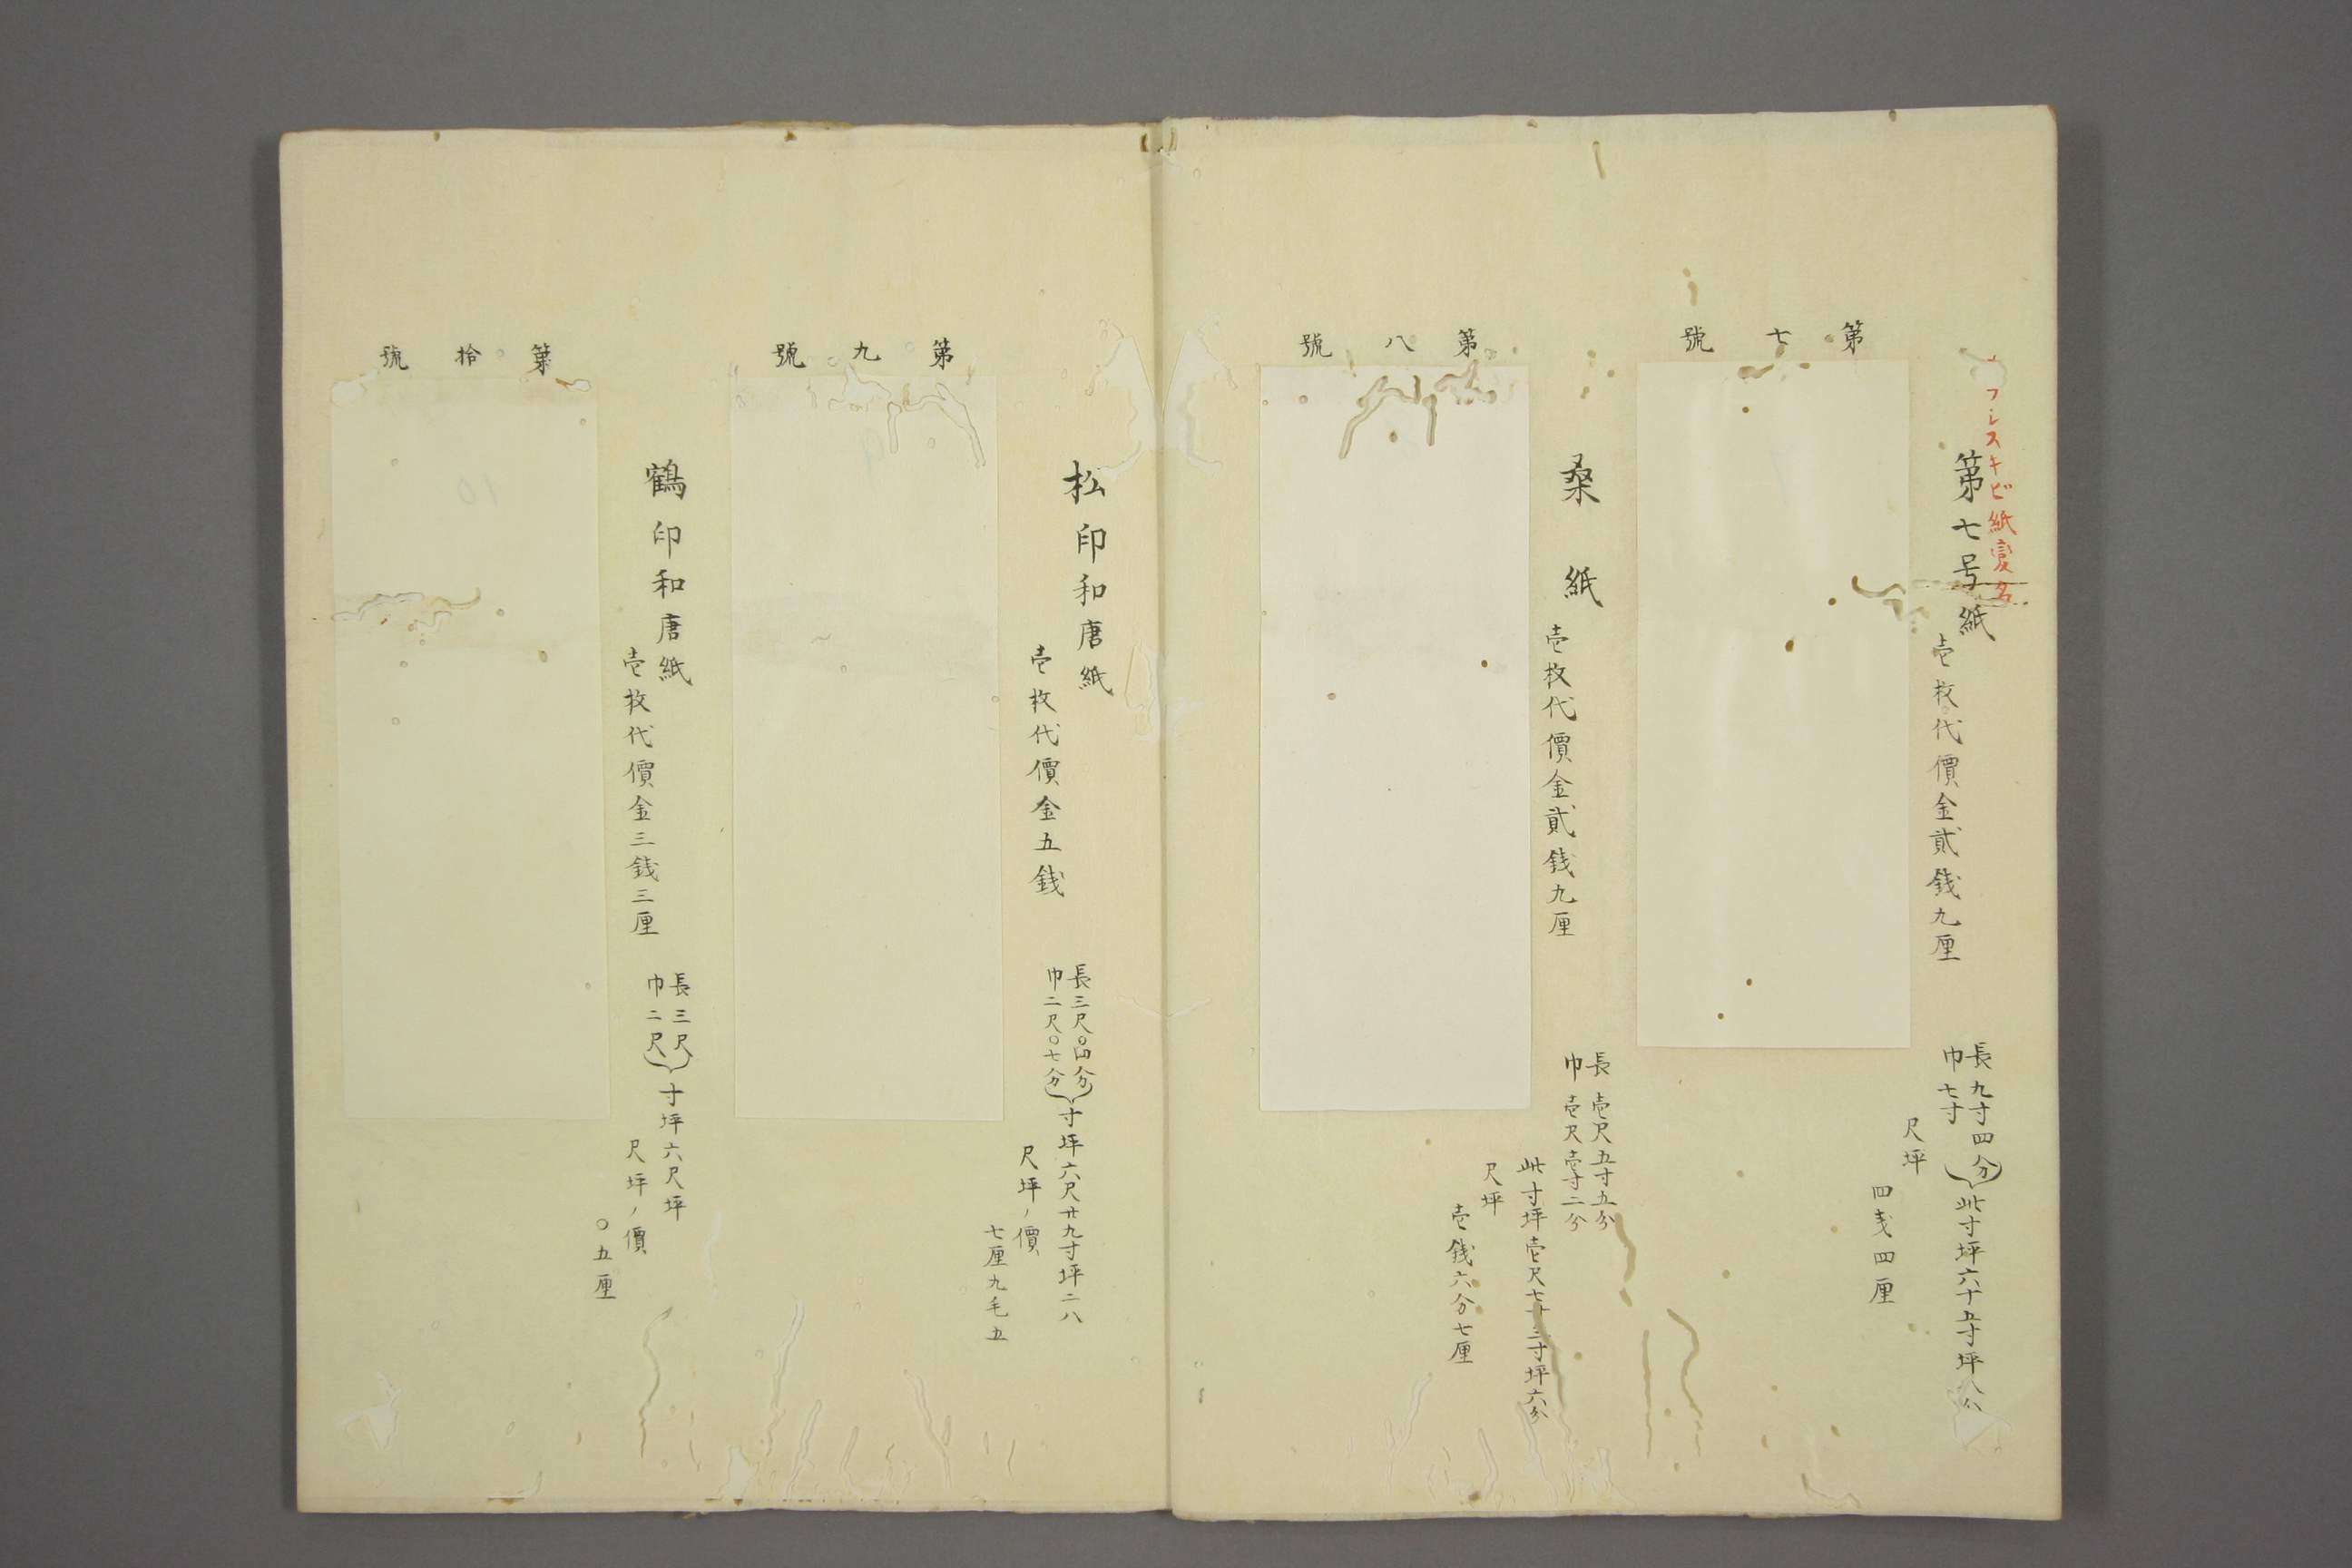 フレスキビ紙変名
第七号紙
壱枚代價金貳錢九厘
長九寸四分
巾七寸
此寸坪六十五寸坪八分
尺坪
四戔四厘
第七號
桒紙
壱枚代價金貳錢九厘
長壱尺五寸五分
巾壱尺壱寸二分
此寸坪壱尺七十三寸坪六分
尺坪
壱錢六分七厘
第八號
松印和唐紙
壱枚代價金五錢
長三尺〇四分
巾二尺〇七分
寸坪六尺廿九寸坪二八
尺坪ノ價
七厘九毛五
第九號
鶴印和唐紙
壱枚代價金三錢三厘
長三尺
巾二尺
寸坪六尺坪
尺坪ノ價
〇五厘
第拾號
9
10